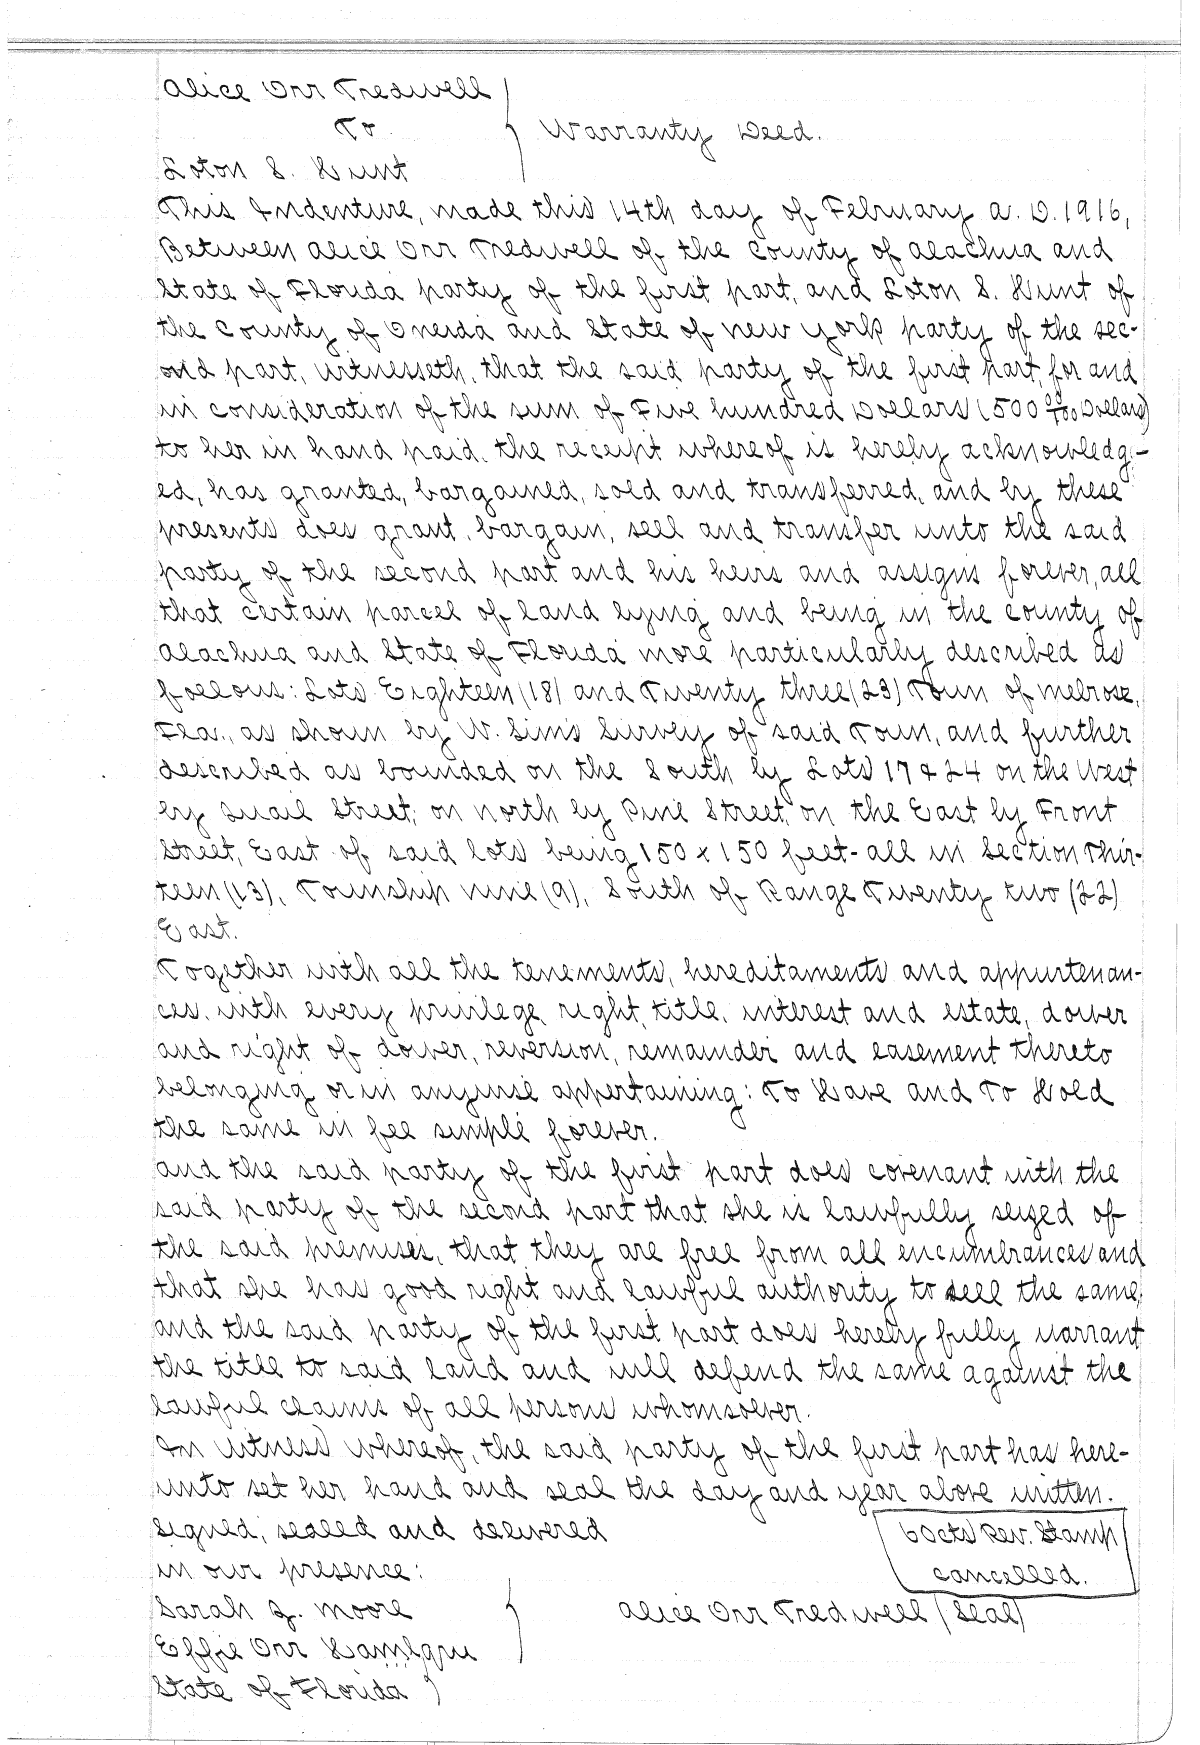 Alice Orr Tredwell
To
Warranty Deed.
Loton S. Hunt
This Indenture, made this 14th day of February A. D. 1916,
Between Alice Orr Tredwell of the County of Alachua and
State of Florida party of the first part, and Loton S. Hunt of
the County of Oneida and State of New York party of the sec-
ond part, witnesseth, that the said party of the first part, for and
in consideration of the sum of Five hundred Dollars (500 00/100 Dollars)
to her in hand paid, the receipt whereof is hereby acknowledg-
ed, has granted, bargained, sold and transferred, and by these
presents does grant, bargain, sell and transfer unto the said
party of the second part and his heirs and assigns forever, all
that certain parcel of land lying and being in the County of
Alachua and State of Florida more particularly described as
follows: Lots Eighteen (18) and Twenty three (23) Town of Melrose,
Fla., as shown by W. Sims Survey of said Town, and further
described as bounded on the South by Lots 17 & 24 on the West
by Quail Street, on North by Pine Street, on the East by Front
Street, East of said lots being 150 x 150 feet - all in Section Thir-
teen (13), Township nine (9), South of Range Twenty two (22)
East.
Together with all the tenements, hereditaments and appurtenan-
ces, with every privilege, right, title, interest and estate, dower
and right of dower, reversion, remainder and easement thereto
belonging or in anywise appertaining: To Have and To Hold
the same in fee simple forever.
And the said party of the first part does covenant with the
said party of the second part that she is lawfully seized of
the said premises, that they are free from all encumbrances and
that she has good right and lawful authority to sell the same,
and the said party of the first part does hereby fully warrant
the title to said land and will defend the same against the
lawful claims of all persons whomsoever.
In witness whereof, the said party of the first part has here-
unto set her hand and seal the day and year above written.
Signed, sealed and delivered
60cts Rev. Stamp
in our presence:
cancelled.
Sarah J. Moore
Alice Orr Tredwell (Seal)
Effie Orr
State of Florida